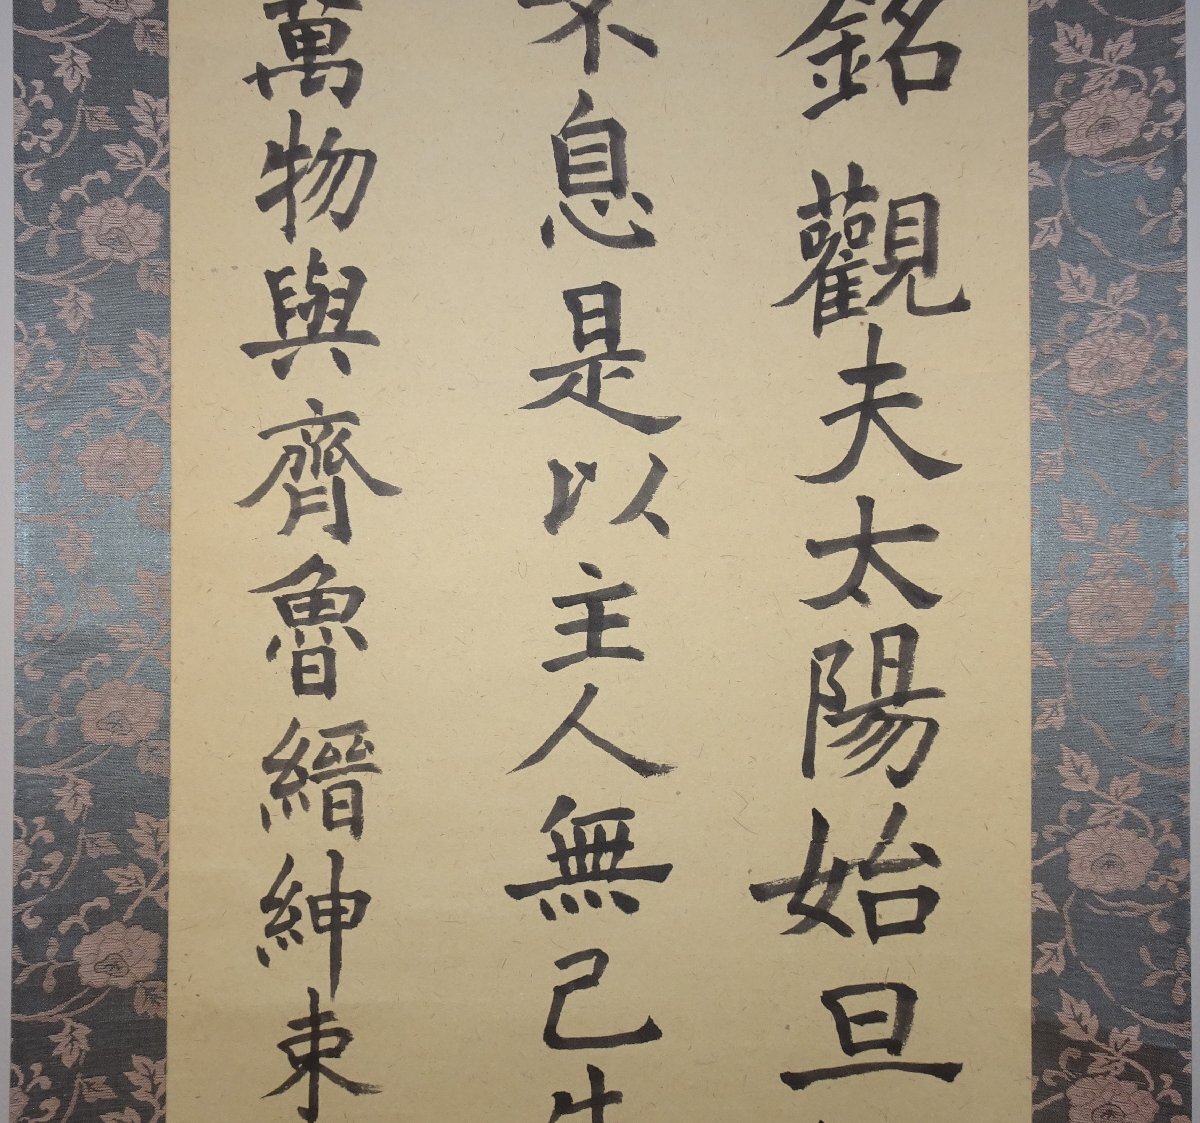 銘觀夫太陽始旦
不息是以主人無己
萬物與齊魯縉紳束